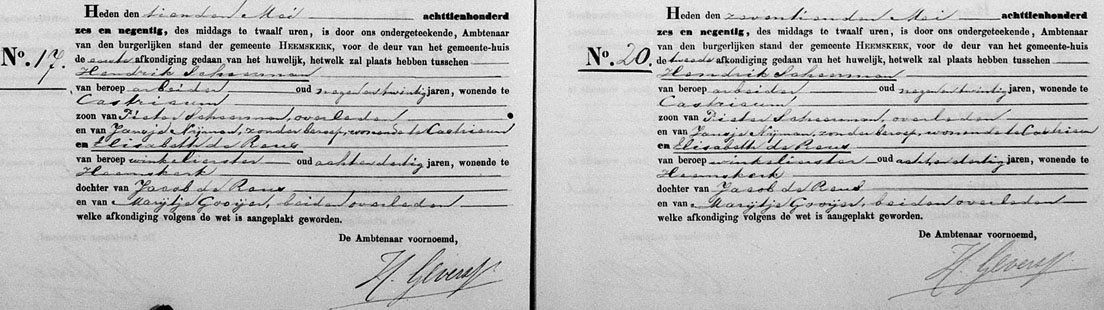 Heden den tienden Mei achttienhonderd
zes en negentig, des middags te twaalf uren, is door ons ondergeteekende, Ambtenaar
van den burgerlijken stand der gemeente HEEMSKERK, voor de deur van het gemeente-huis
No. 17. de eerste afkondiging gedaan van het huwelijk, hetwelk zal plaats hebben tusschen
Hendrik Scheerman
van beroep arbeider oud negenentwintig jaren, wonende te
Castricum
zoon van Pieter Scheerman, overleden
en van Jansje Nijman, zonder beroep, wonende te Castricum
en Elisabeth de Reus
van beroep winkelierster oud achtendertig jaren, wonende te
Heemskerk
dochter van Jacob de Reus
en van Marijtje Gooijer, beiden overleden
welke afkondiging volgens de wet is aangeplakt geworden.
De Ambtenaar voornoemd,
H. Gevers
Heden den zeventienden Mei achttienhonderd
zes en negentig, des middags te twaalf uren, is door ons ondergeteekende, Ambtenaar
van den burgerlijken stand der gemeente HEEMSKERK, voor de deur van het gemeente-huis
No. 20. de tweede afkondiging gedaan van het huwelijk, hetwelk zal plaats hebben tusschen
Hendrik Scheerman
van beroep arbeider oud negenentwintig jaren, wonende te
Castricum
zoon van Pieter Scheerman, overleden
en van Jansje Nijman, zonder beroep, wonende te Castricum
en Elisabeth de Reus
van beroep winkelierster oud achtendertig jaren, wonende te
Heemskerk
dochter van Jacob de Reus
en van Marijtje Gooijer, beiden overleden
welke afkondiging volgens de wet is aangeplakt geworden.
De Ambtenaar voornoemd,
H. Gevers